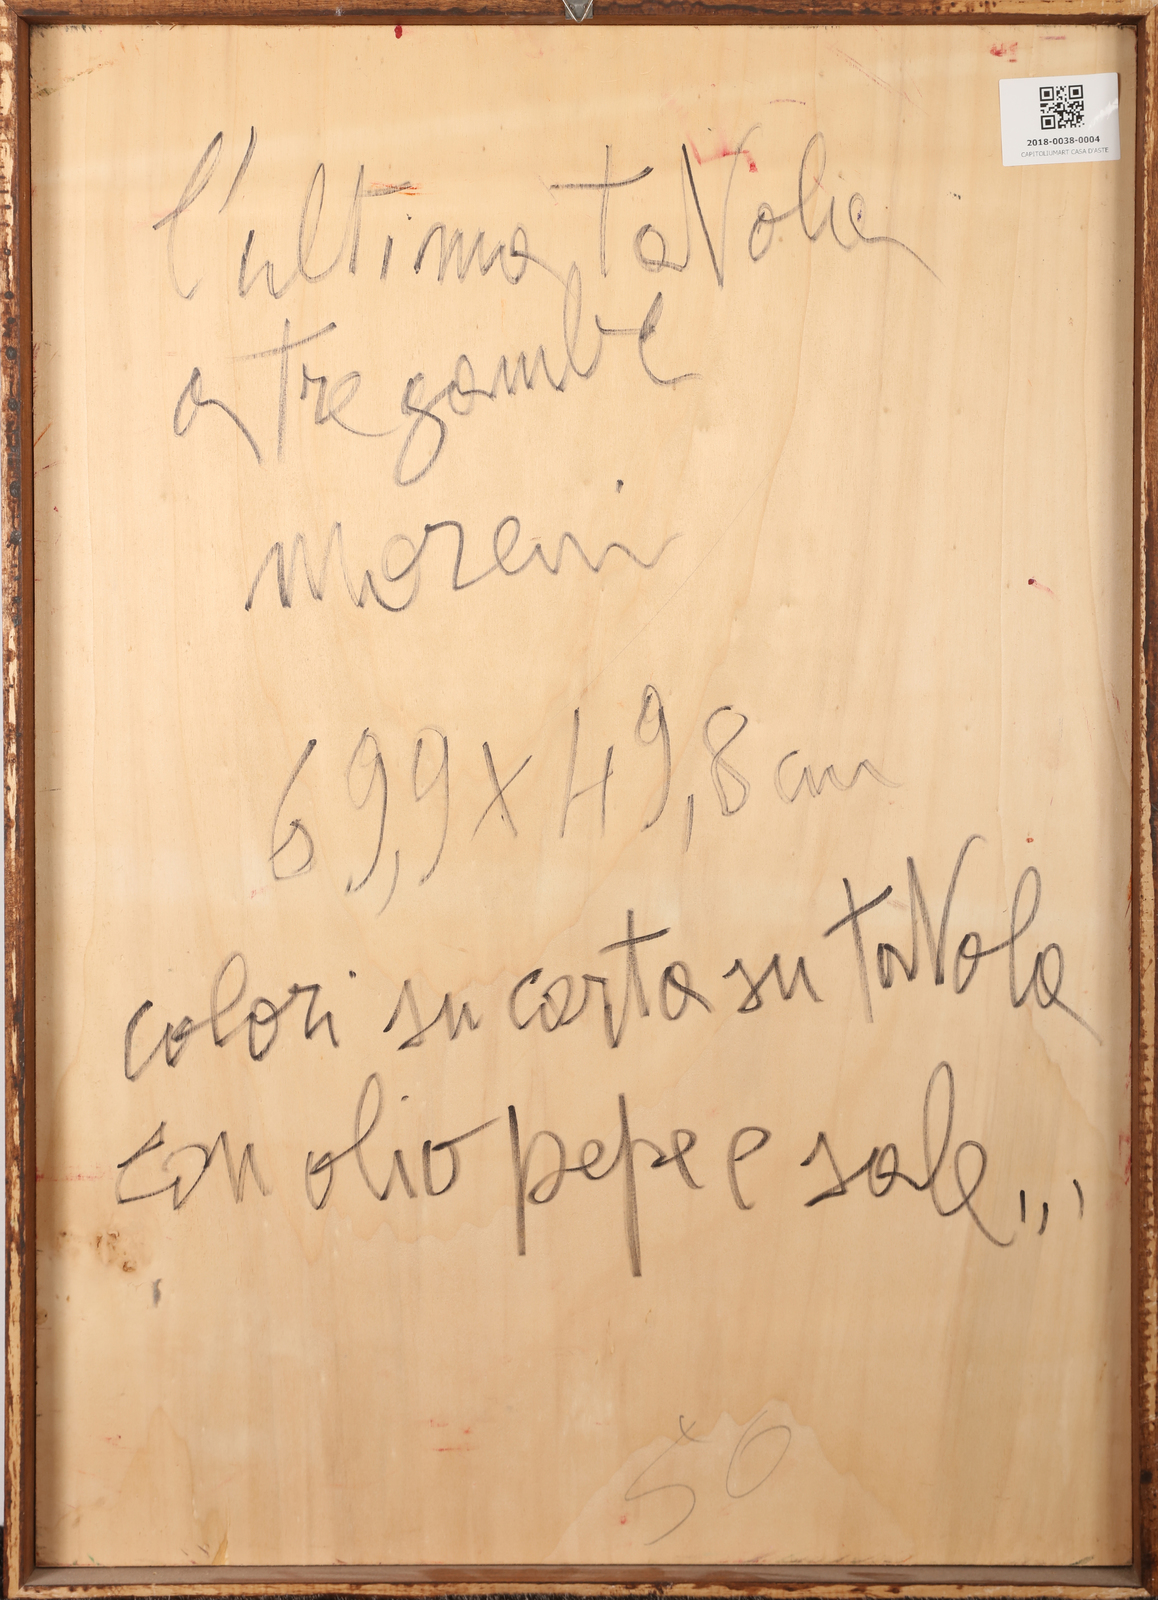 2018-0038-0004
CAPITOLIUMART CASA D'ASTE
l'ultima taVolia
a tre gambe
moreni
69,9 x 49,8 cm
colori su carta su taVola
con olio pepe e sale,,,
50